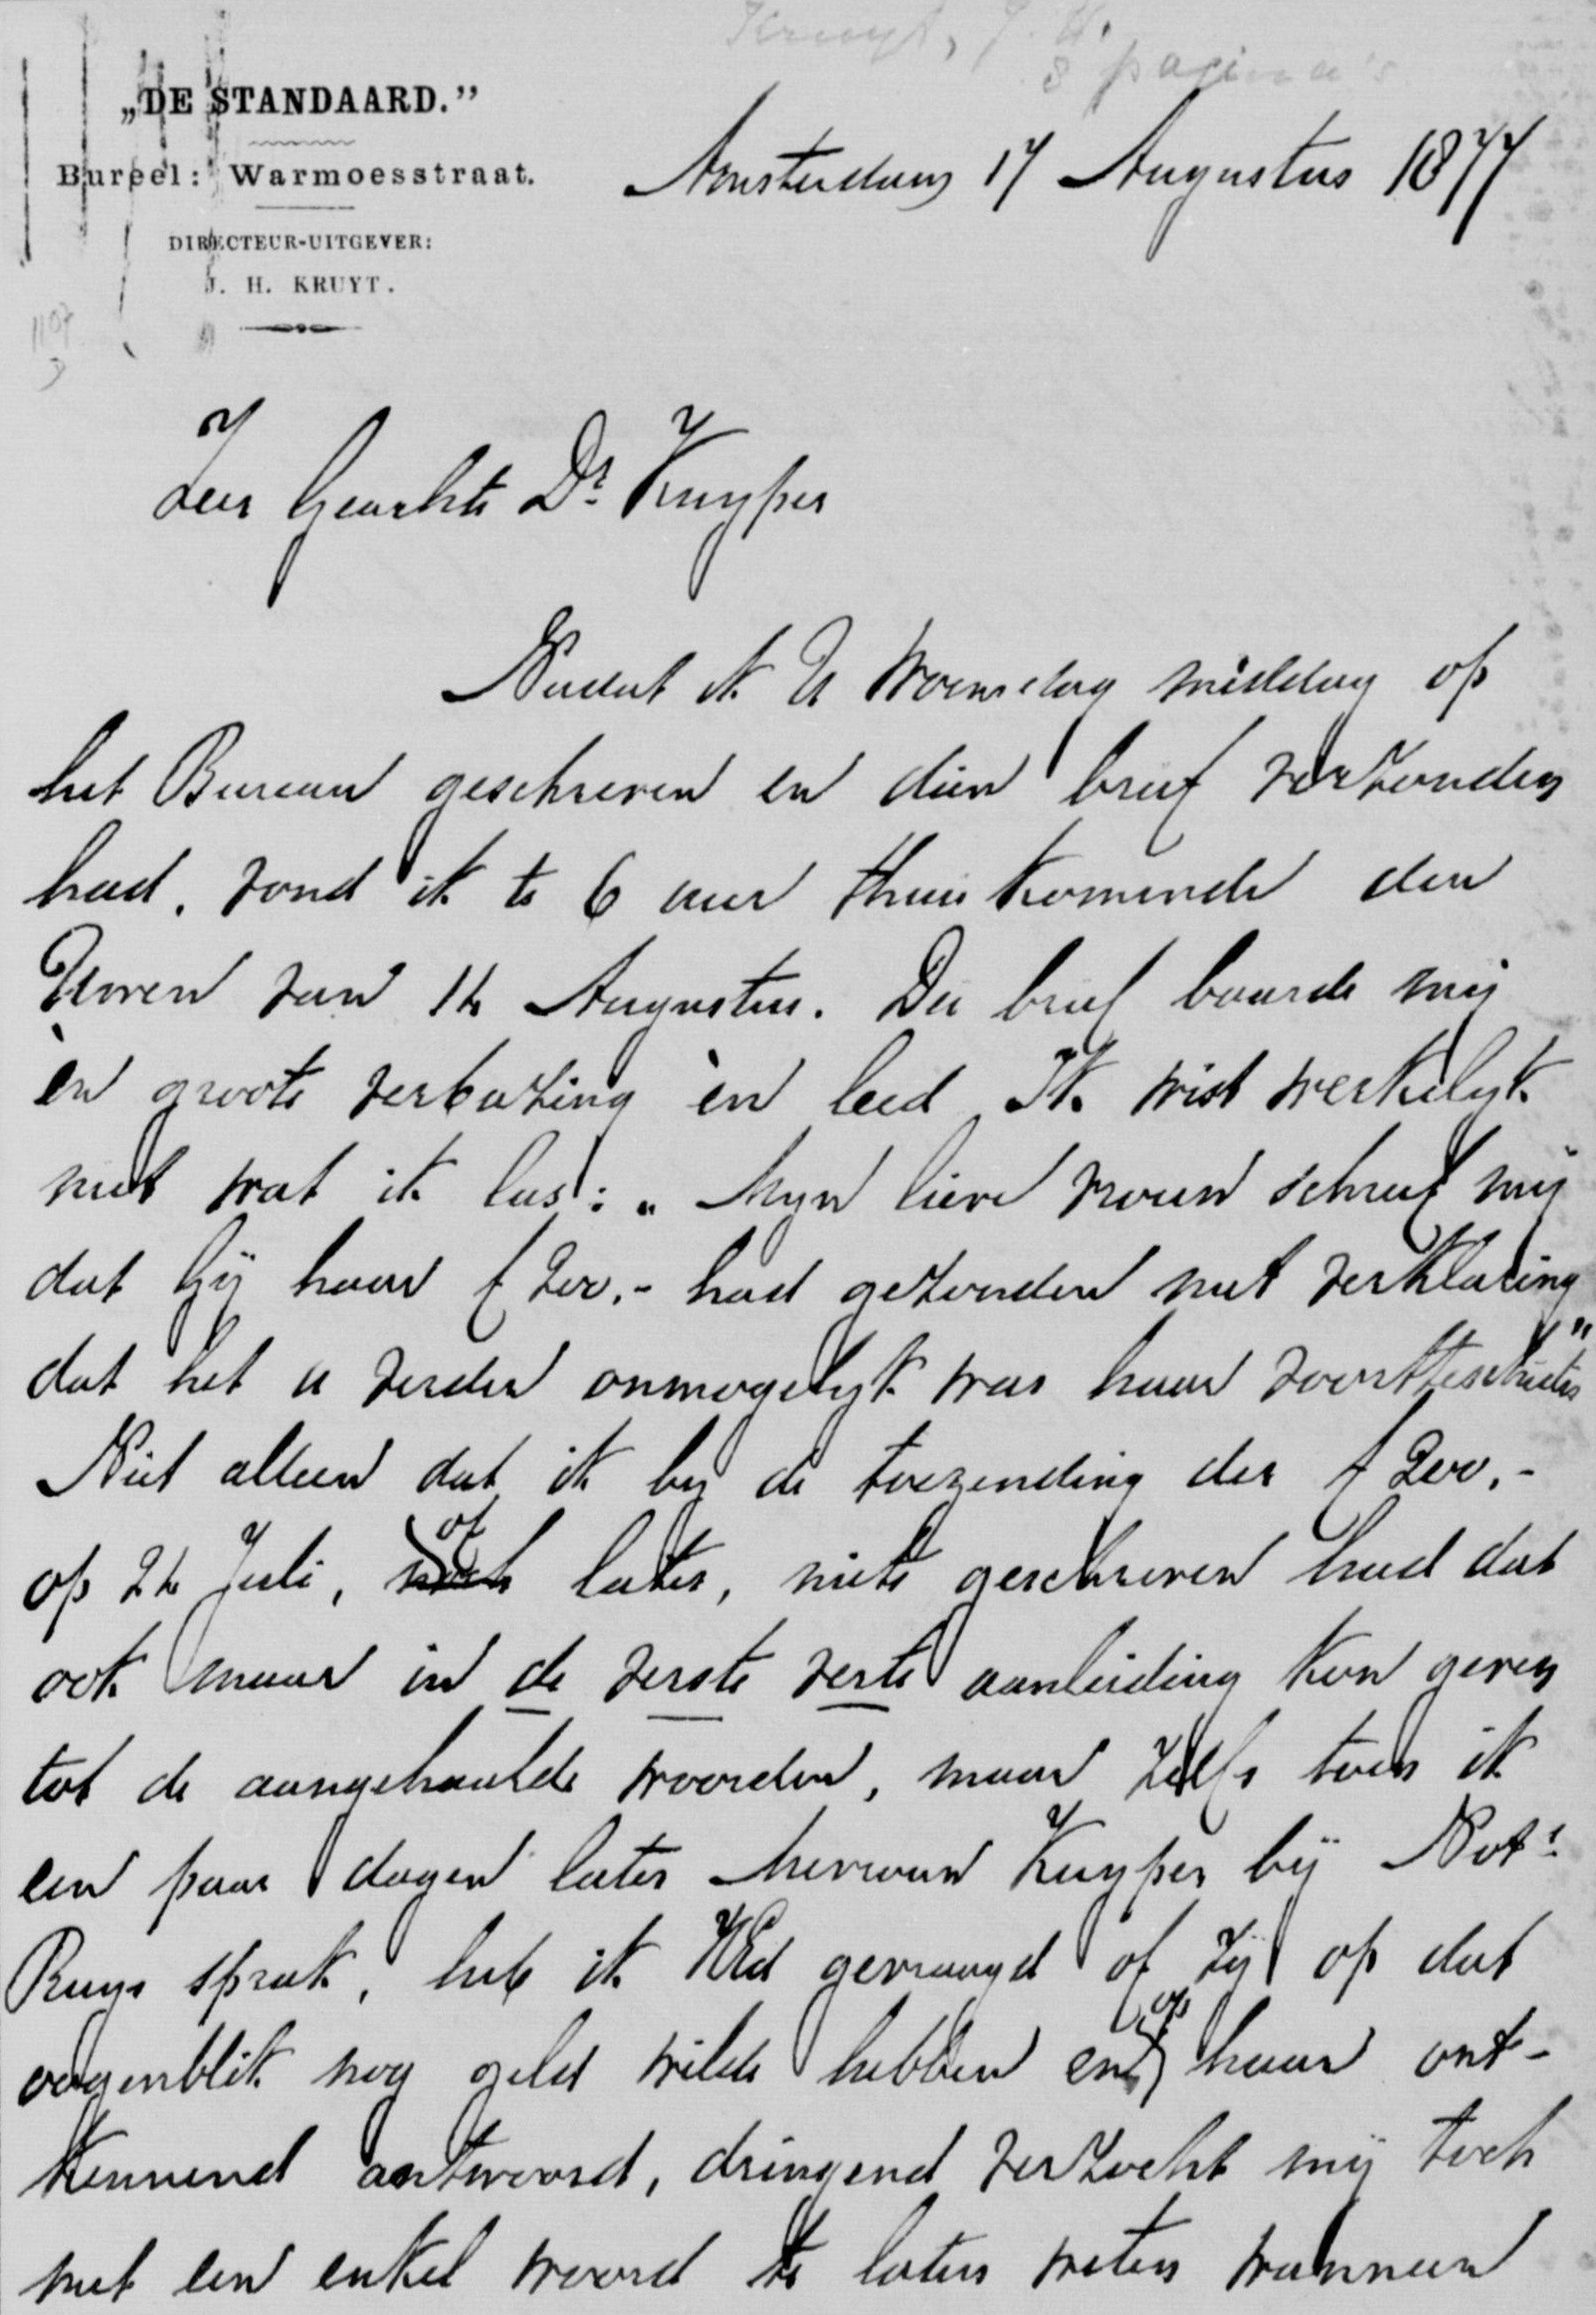 Kruyt, J. H.
8 pagina's
„DE STANDAARD.”
Bureel: Warmoesstraat.
DIRECTEUR-UITGEVER:
J. H. KRUYT.
Amsterdam 17 Augustus 1877
Zeer Geachte Dr. Kuyper
Nadat ik U Woensdag middag op
het Bureau geschreven en dien brief verzonden
had, vond ik te 6 uur thuis komende den
Uwen van 14 Augustus. Die brief baarde mij
èn groote verbazing èn leed. Ik wist werkelyk
niet wat ik las: „Myn lieve vrouw schreef mij
dat Gij haar f 200.- had gezonden met verklaring
dat het u verder onmogelyk was haar voortteschieten”
Niet alleen dat ik by de toezending der f 200.-
op 24 Juli, noch of later, niets geschreven had dat
ook maar in de verste verte aanleiding kon geven
tot de aangehaalde woorden, maar zelfs toen ik
een paar dagen later Mevrouw Kuyper bij Nots.
Ruys sprak, heb ik HEd gevraagd of zij op dat
oogenblik nog geld wilde hebben en op haar ont-
kennend antwoord, dringend verzocht mij toch
met een enkel woord te laten weten wanneer